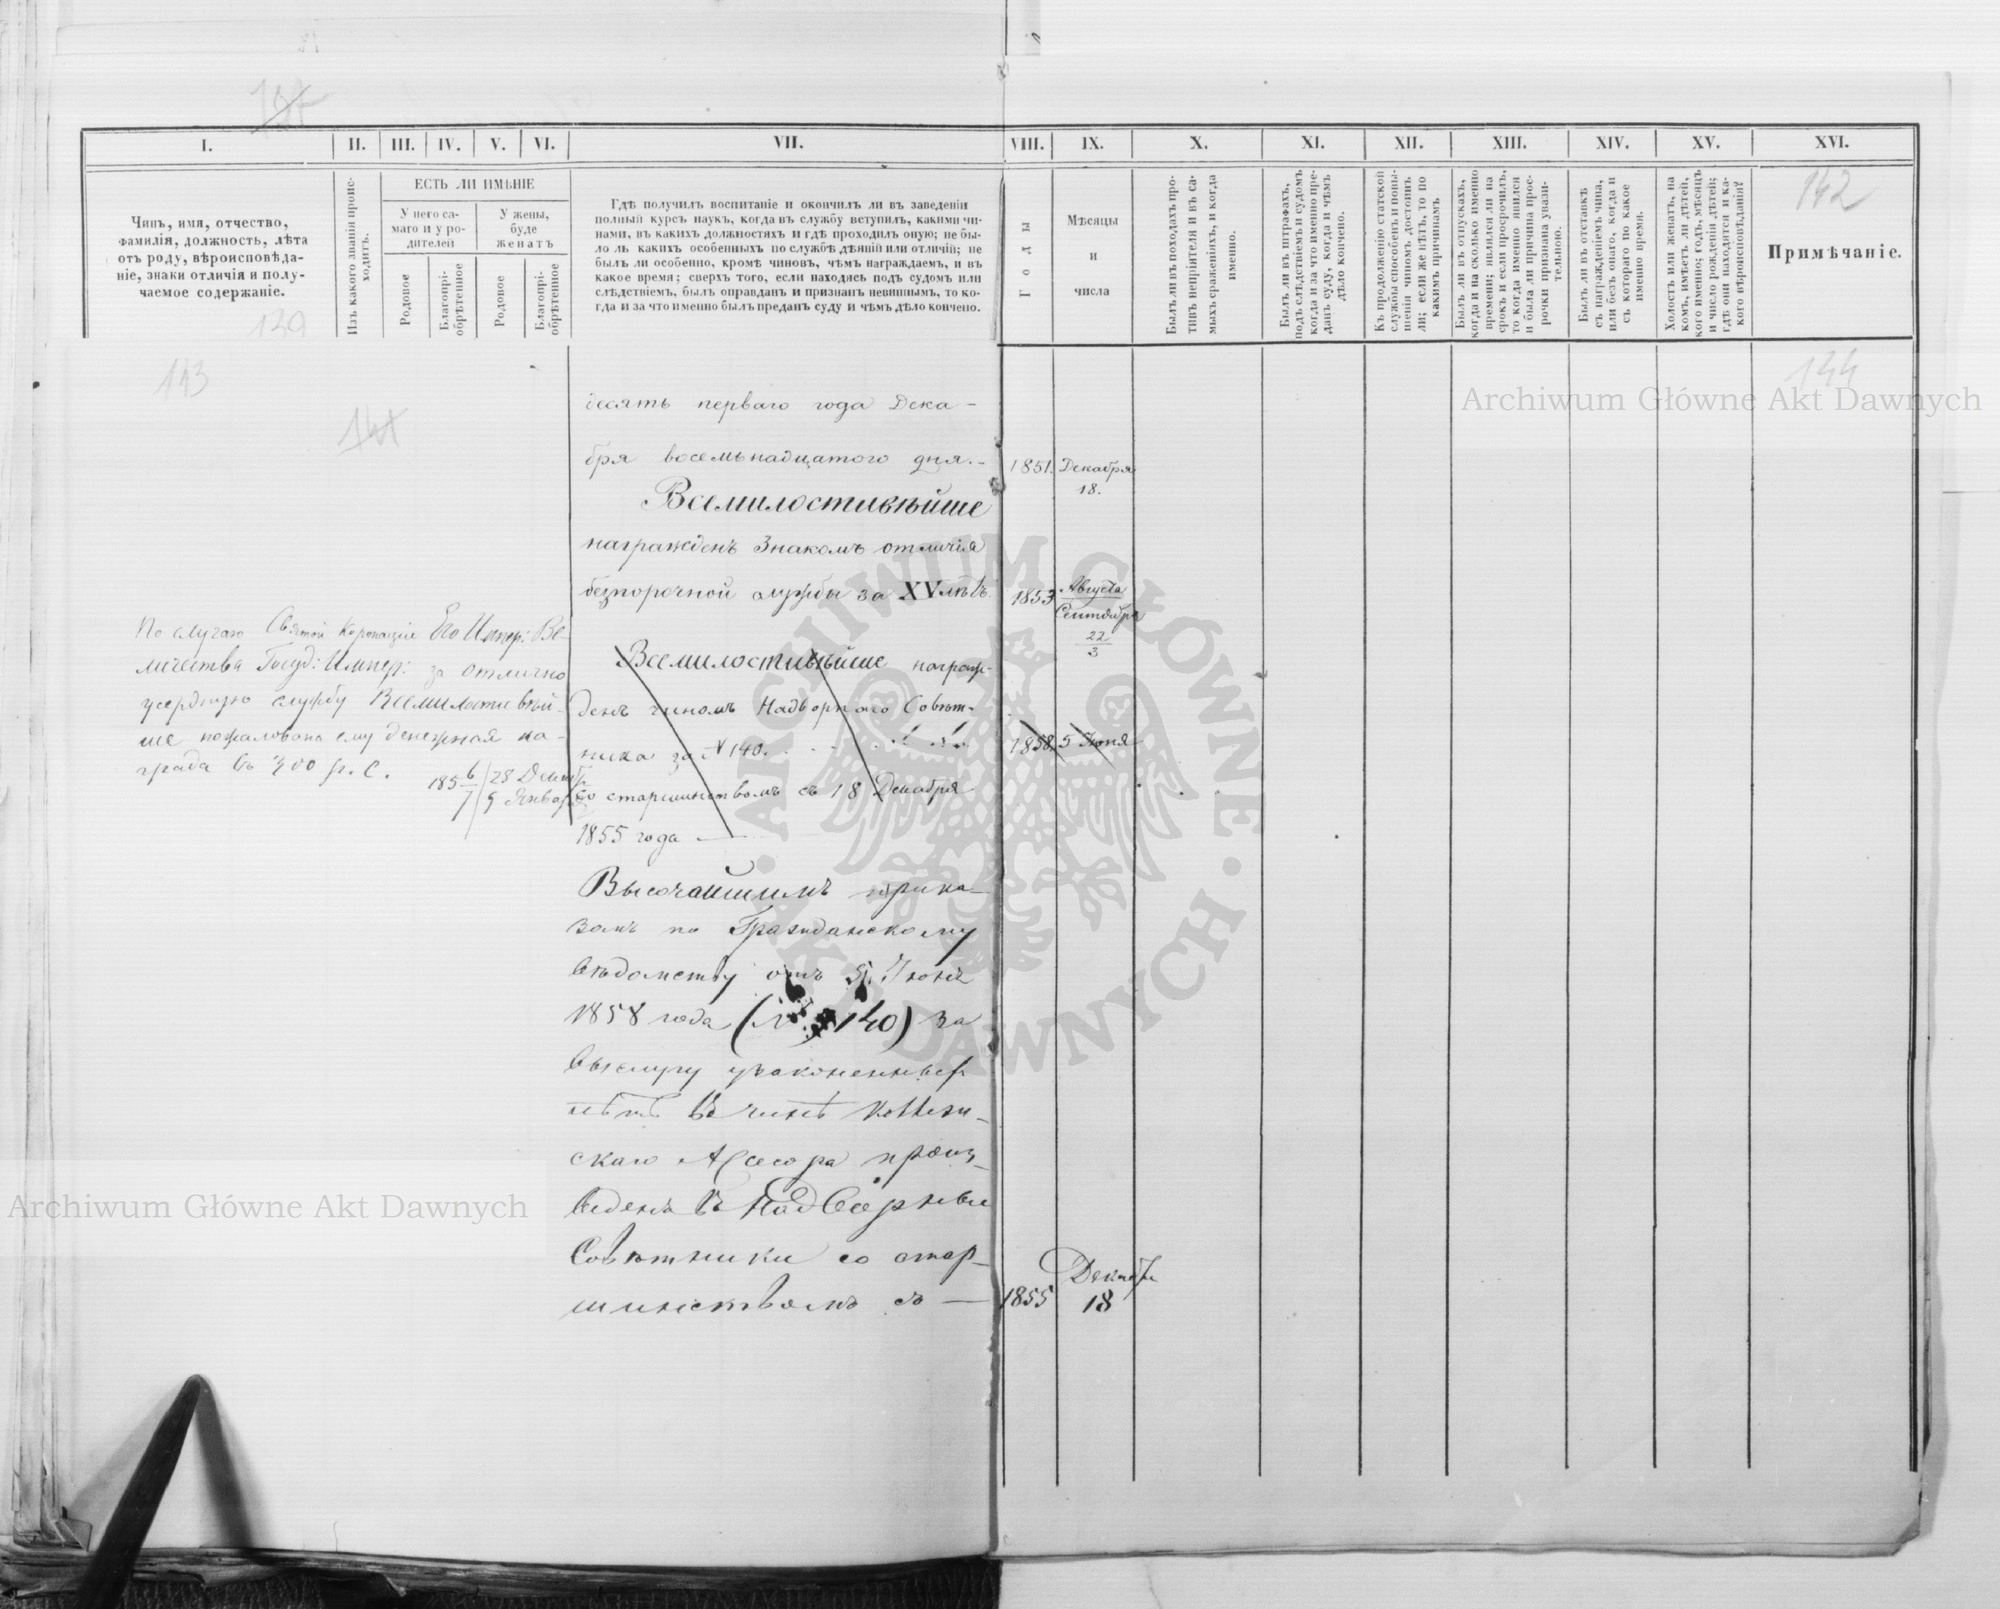 I. II. III. IV. V. VI. VII. VIII. IX. X. XI. XII. XIII. XIV. XV. XVI.
Чинъ, имя, отчество,
фамилія, должность, лѣта
отъ роду, вѣроисповѣда-
ніе, знаки отличія и полу-
чаемое содержаніе.
139
Изъ какого званія проис-
ходитъ.
ЕСТЬ ЛИ ИМѢНІЕ
У него са-
маго и у ро-
дителей
У жены,
буде
женатъ
Родовое
Благопрі-
обрѣтенное
Родовое
Благопрі-
обрѣтенное
Гдѣ получилъ воспитаніе и окончилъ ли въ заведеніи
полный курсъ наукъ, когда въ службу вступилъ, какими чи-
нами, въ какихъ должностяхъ и гдѣ проходилъ оную; не бы-
ло ль какихъ особенныхъ по службѣ дѣяній или отличій; не
былъ ли особенно, кромѣ чиновъ, чѣмъ награждаемъ, и въ
какое время; сверхъ того, если находясь подъ судомъ или
слѣдствіемъ, былъ оправданъ и признанъ невиннымъ, то ко-
гда и за что именно былъ преданъ суду и чѣмъ дѣло кончено.
Годы
Мѣсяцы
и
числа
Былъ ли въ походахъ про-
тивъ непріятеля и въ са-
мыхъ сраженіяхъ, и когда
именно.
Былъ ли въ штрафахъ,
подъ слѣдствіемъ и судомъ
когда и за что именно пре-
данъ суду, когда и чѣмъ
дѣло кончено.
Къ продолженію статской
службы способенъ и повы-
шенія чиномъ достоинъ
ли; если же нѣтъ, то по
какимъ причинамъ
Былъ ли въ отпускахъ,
когда и на сколько именно
времени; являлся ли на
срокъ и если просрочилъ,
то когда именно явился
и была ли причина прос-
рочки признана уважи-
тельною.
Былъ ли въ отставкѣ
съ награжденіемъ чина,
или безъ онаго, когда и
съ котораго по какое
именно время.
Холостъ или женатъ, на
комъ, имѣетъ ли дѣтей,
кого именно; годъ, мѣсяцъ
и число рожденія дѣтей;
гдѣ они находятся и ка-
кого вѣроисповѣданія?
142
Примѣчаніе.
143
141
144
Archiwum Główne Akt Dawnych
десять перваго года Дека-
бря восемьнадцатого дня.- 1851. Декабря
18.
Всемилостивѣйше
награжденъ Знакомъ отличія
безпорочной службы за XV лѣтъ. 1853 Августа
Сентября
22
3
По случаю Святой Коронаціи Его Импер: Ве-
личества Госуд: Импер: за отлично
усердную службу Всемилостивѣй-
ше пожалована ему денежная на-
града въ 300 р. с. 1856/7 28 Декаб
9 Январ
Всемилостивѣйше награж-
денъ чиномъ Надворнаго Совѣт-
ника за N 140. 1858 5 Іюня
со старшинствомъ съ 18 Декабря
1855 года
Высочайшимъ прика-
зомъ по Гражданскому
вѣдомству отъ 5 Іюня
1858 года (N 140) за
выслугу узаконенныхъ
лѣтъ въ чинѣ Коллеж-
скаго Ассесора произ-
веденъ въ Надворные
Совѣтники со стар-
шинствомъ съ — 1855 Декабр
18
Archiwum Główne Akt Dawnych
ARCHIWUM GŁÓWNE · AKT DAWNYCH ·